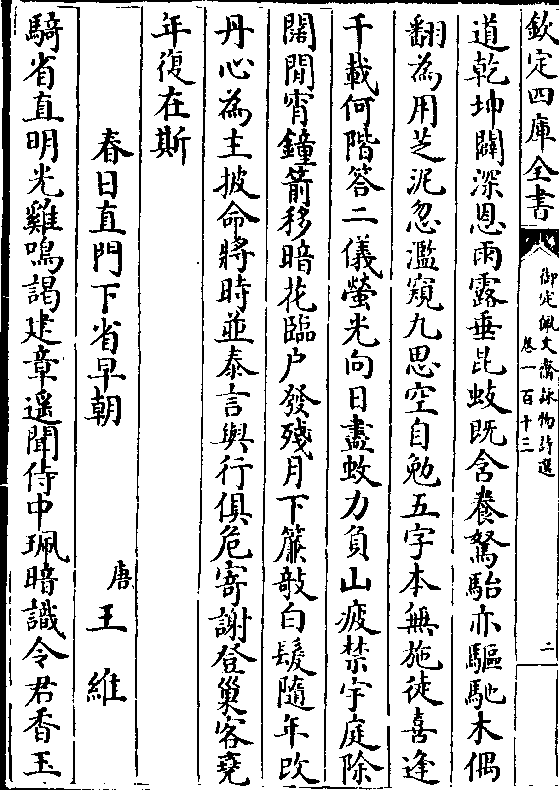 欽定四庫全書
御定佩文齋詠物詩選
卷一百十三
二
道乾坤闢深恩雨露垂昆蚑既含養駑駘亦驅馳木偶
翻為用芝泥忽濫窺九思空自勉五字本無施徒喜逢
千載何階答二儀螢光向日盡蚊力負山疲禁宇庭除
闊閒宵鐘箭移暗花臨户發殘月下簾敧白髮隨年改
丹心為主披命將時並泰言與行俱危寄謝登巢客堯
年復在斯
春日直門下省早朝
唐王維
騎省直明光雞鳴謁建章遥聞侍中珮暗識令君香玉